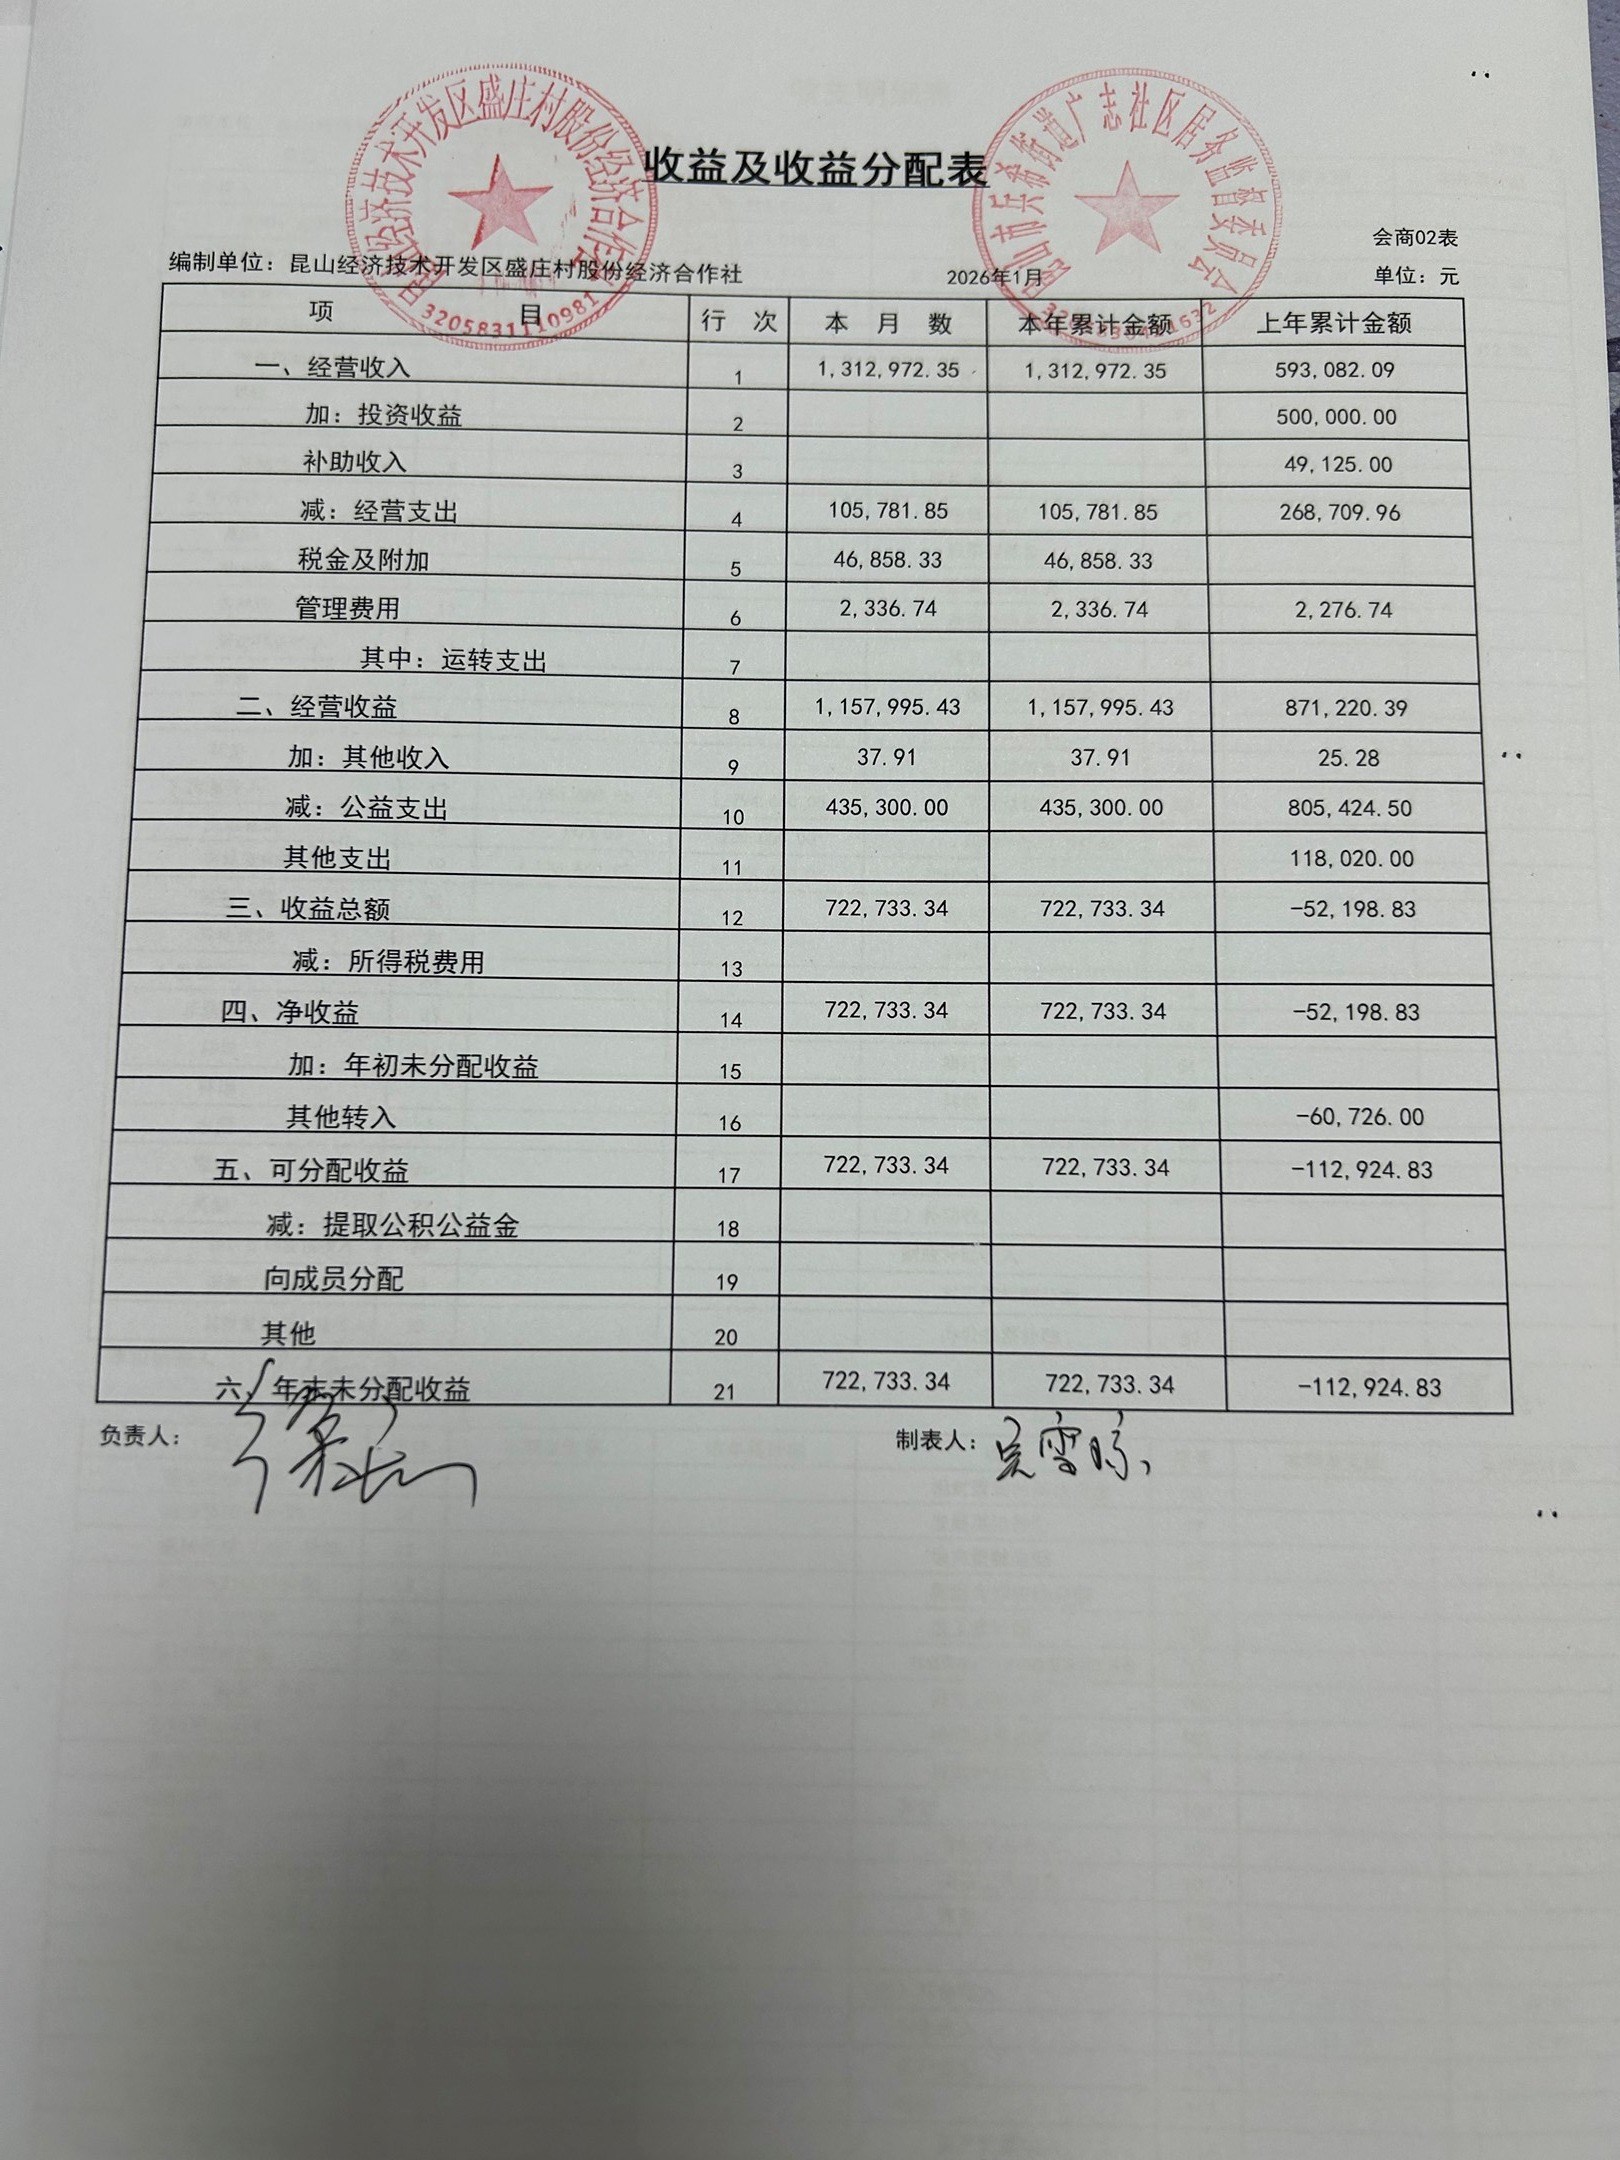 收益及收益分配表
会商02表
编制单位：昆山经济技术开发区盛庄村股份经济合作社 2026年1月 单位：元
项 目 行 次 本 月 数 本年累计金额 上年累计金额
一、经营收入 1 1,312,972.35 1,312,972.35 593,082.09
加：投资收益 2 500,000.00
补助收入 3 49,125.00
减：经营支出 4 105,781.85 105,781.85 268,709.96
税金及附加 5 46,858.33 46,858.33
管理费用 6 2,336.74 2,336.74 2,276.74
其中：运转支出 7
二、经营收益 8 1,157,995.43 1,157,995.43 871,220.39
加：其他收入 9 37.91 37.91 25.28
减：公益支出 10 435,300.00 435,300.00 805,424.50
其他支出 11 118,020.00
三、收益总额 12 722,733.34 722,733.34 -52,198.83
减：所得税费用 13
四、净收益 14 722,733.34 722,733.34 -52,198.83
加：年初未分配收益 15
其他转入 16 -60,726.00
五、可分配收益 17 722,733.34 722,733.34 -112,924.83
减：提取公积公益金 18
向成员分配 19
其他 20
六、年末未分配收益 21 722,733.34 722,733.34 -112,924.83
负责人： 制表人：
昆山经济技术开发区盛庄村股份经济合作社
3205831110981
街道广志社区居务监督委员会